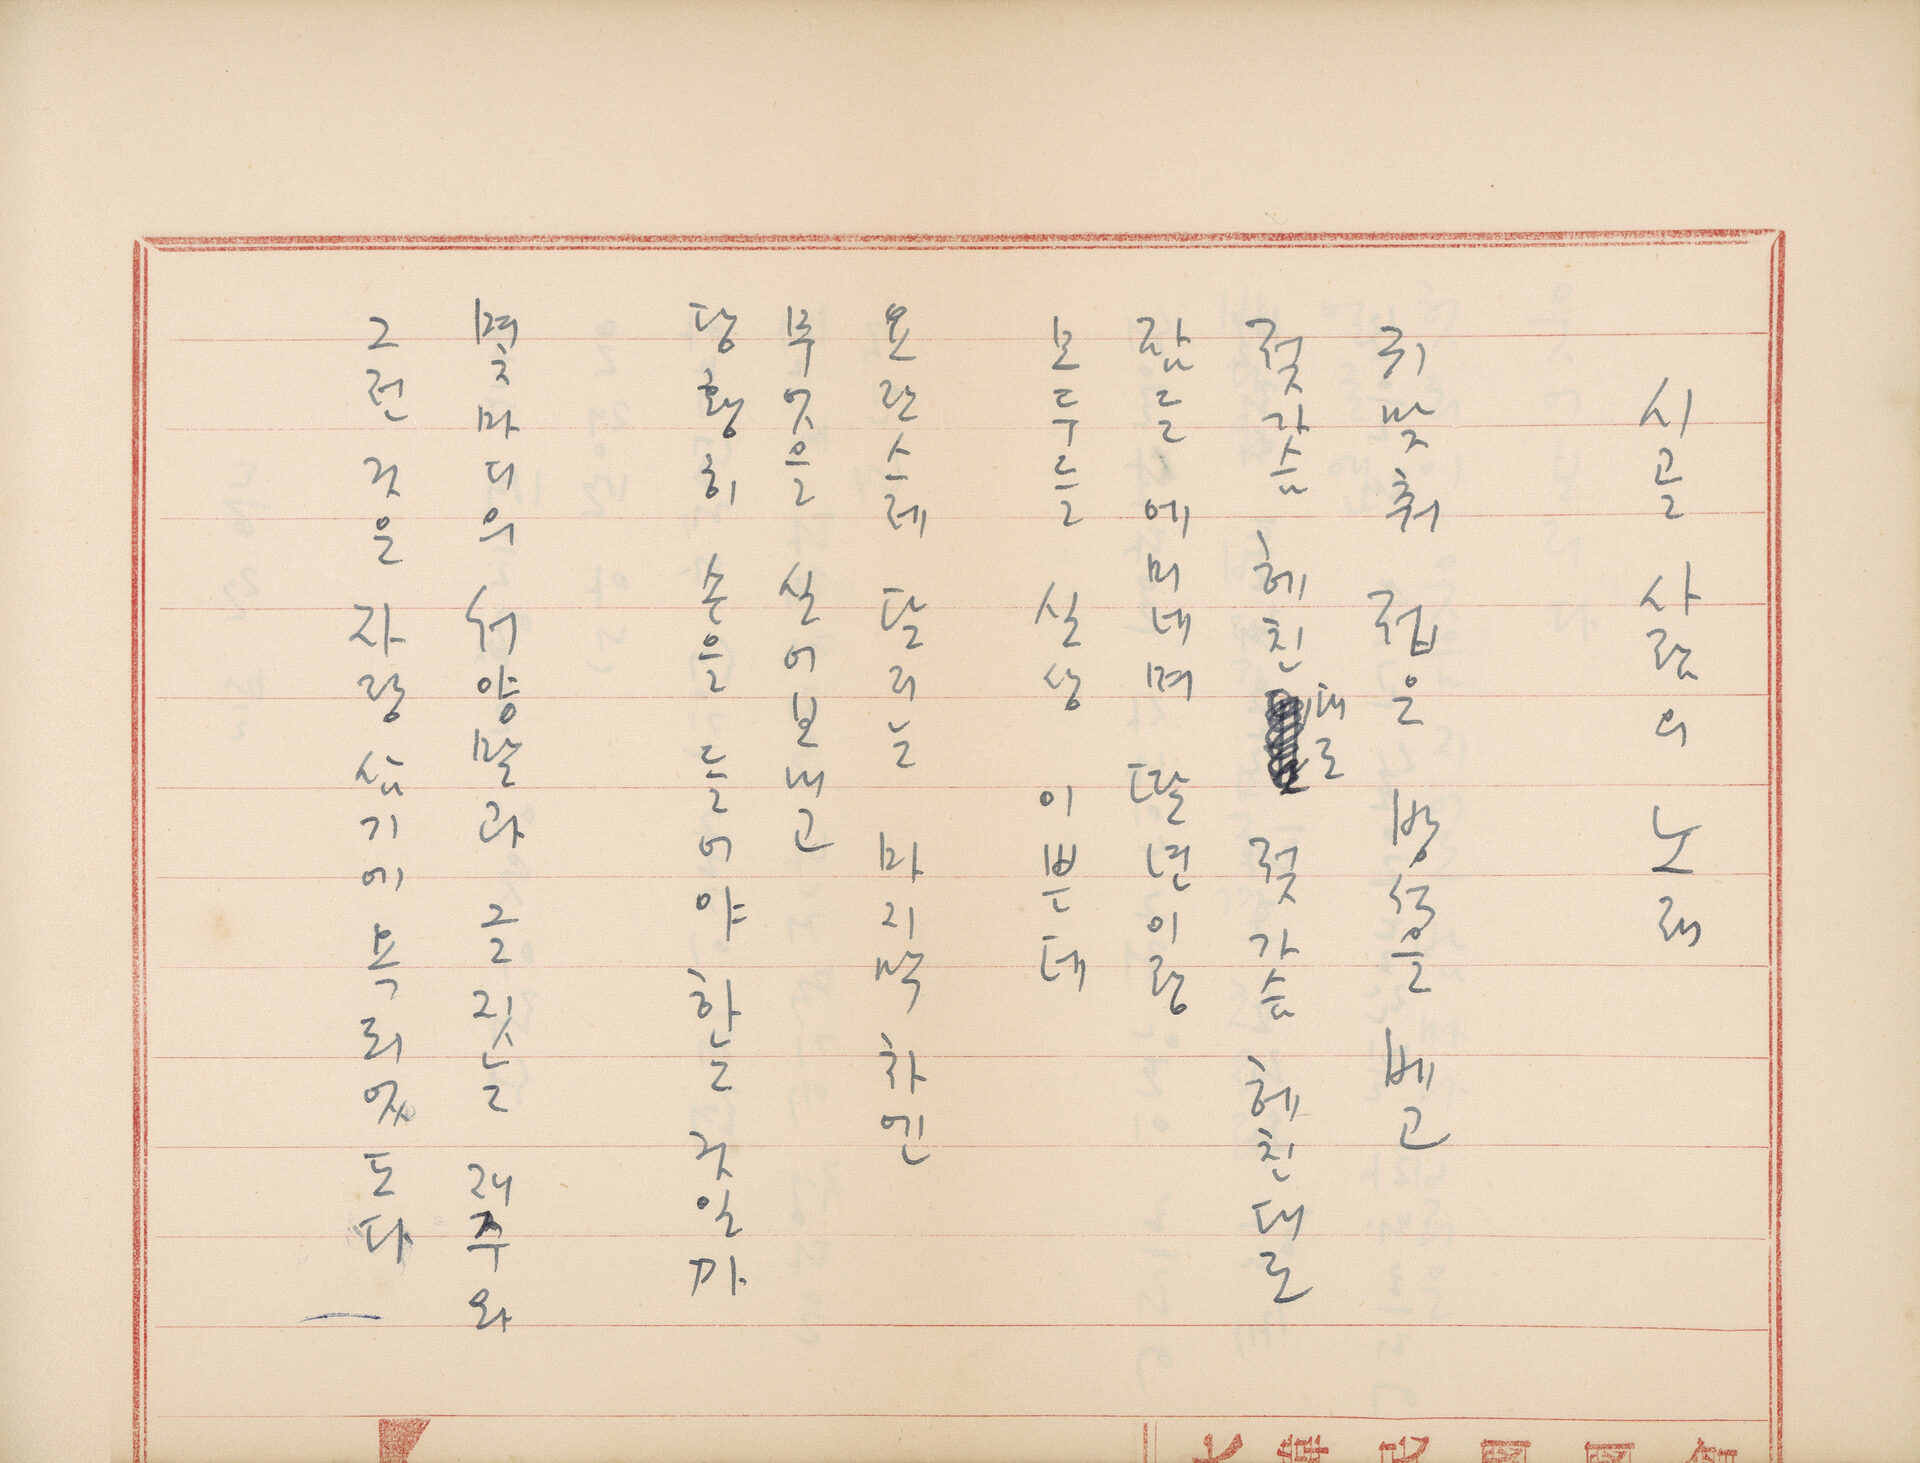 시골 사람의 노래
귀 맞춰 접은 방석을 베고
젖가슴 헤친 대로 젖가슴 헤친대로
잠든 에미네며 딸년이랑
모두들 실상 이쁜데
요란스레 달리는 마지막 차엔
무엇을 실어보내고
당황히 손을 들어야 하는 것일까
몇마디의 서양말과 글 짓는 재주와
그런 것은 자랑 삼기에 욕되었도다